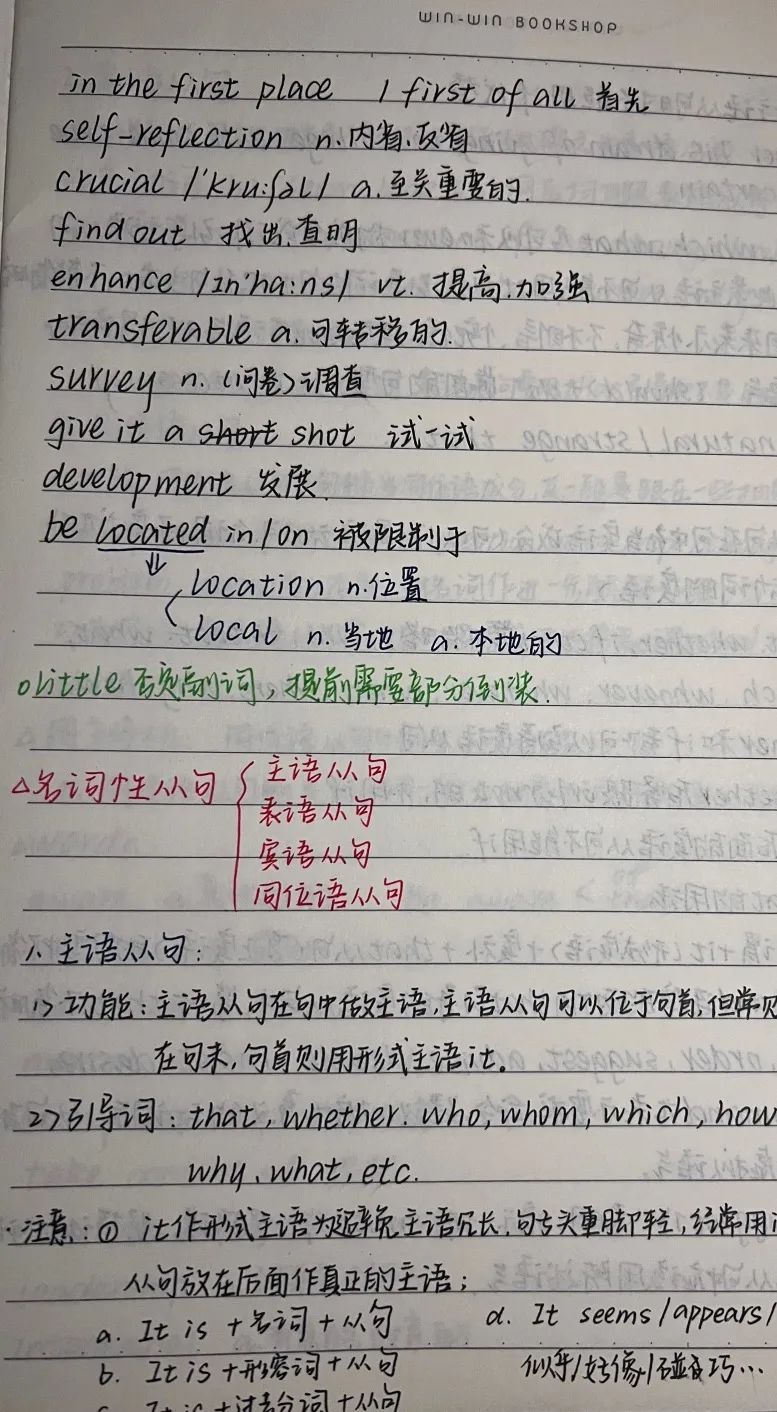 WIN-WIN BOOKSHOP
in the first place / first of all 首先
self-reflection n. 内省.反省
crucial /'kru:ʃəl/ a. 至关重要的.
find out 找出.查明
enhance /ɪn'hɑ:ns/ vt. 提高.加强
transferable a. 可转移的.
survey n. (问卷)调查
give it a short shot 试一试
development 发展.
be located in/on 被限制于
⇓ location n. 位置
local n. 当地 a. 本地的
o Little 否定副词，提前需要部分倒装.
△名词性从句 { 主语从句
表语从句
宾语从句
同位语从句
1、主语从句：
1> 功能：主语从句在句中做主语，主语从句可以位于句首，但常见
在句末，句首则用形式主语it。
2>引导词：that, whether. who, whom, which, how
why、what, etc.
·注意：① it作形式主语为避免主语冗长，句子头重脚轻，经常用i
从句放在后面作真正的主语；
a. It is + 名词 + 从句 d. It seems/appears/
b. It is + 形容词 + 从句 似乎/好像/碰巧…
c. It is + 过去分词 + 从句